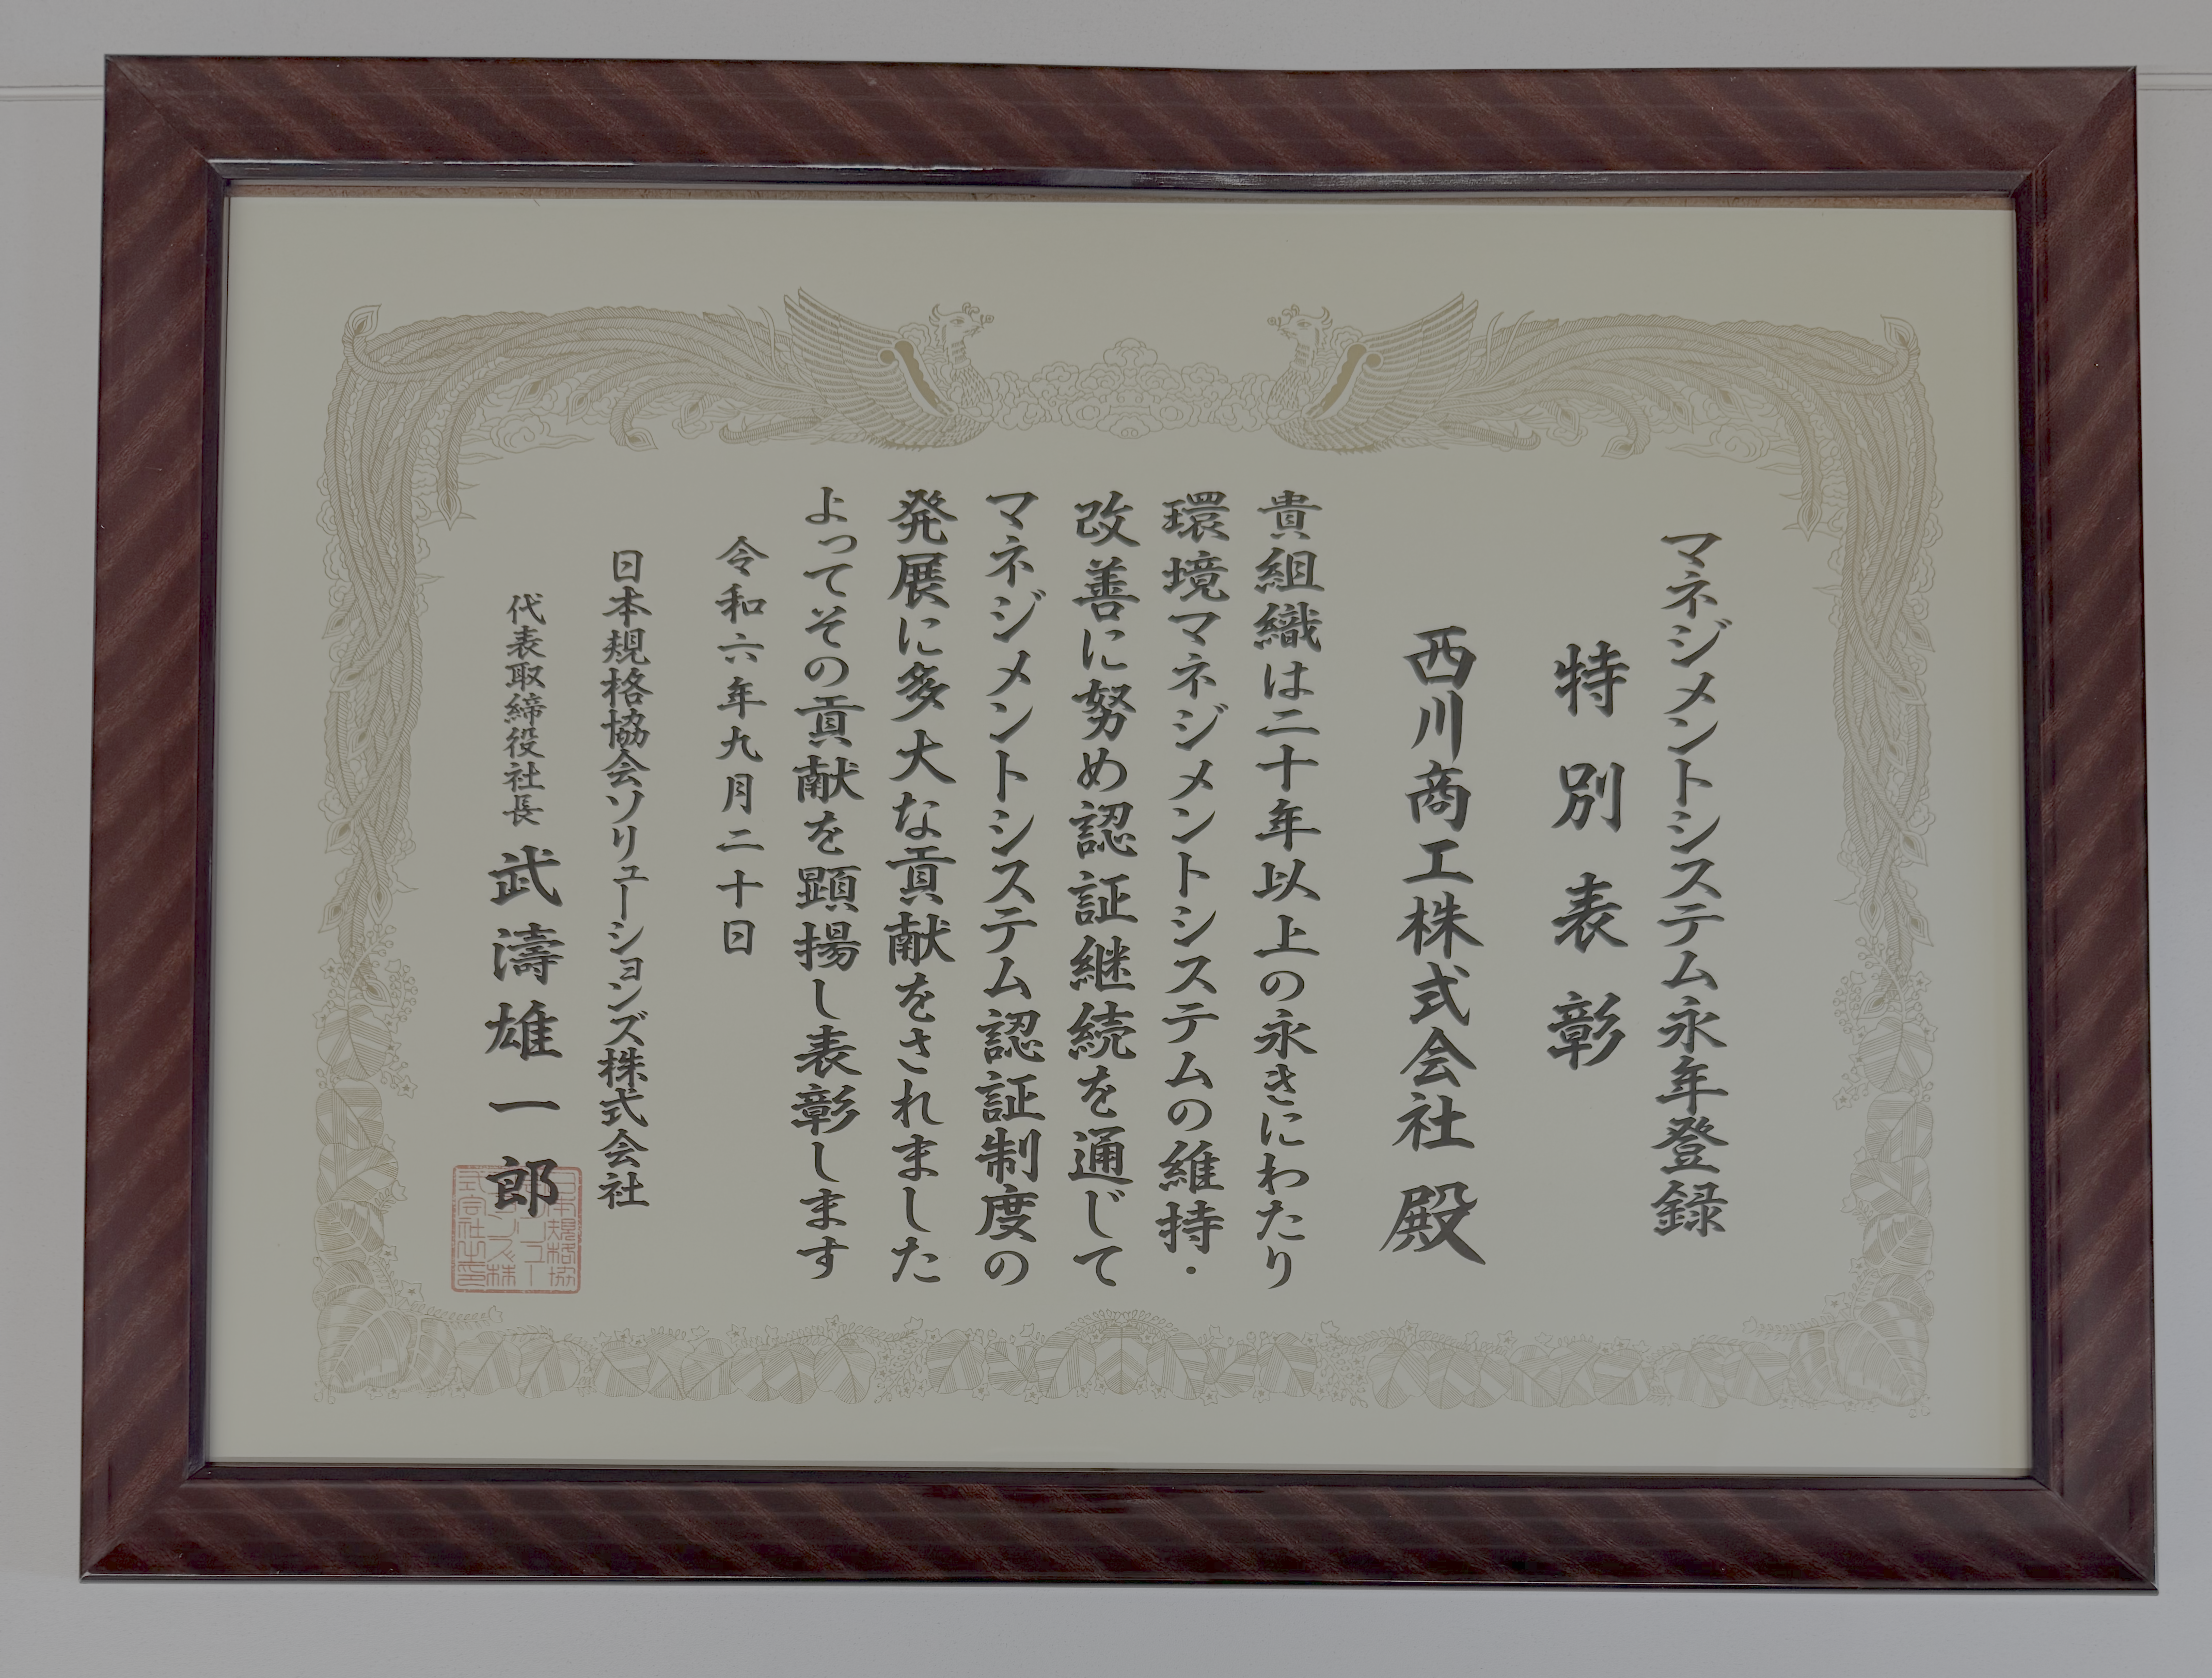 マネジメントシステム永年登録
特別表彰
西川商工株式会社 殿
貴組織は二十年以上の永きにわたり
環境マネジメントシステムの維持・
改善に努め認証継続を通じて
マネジメントシステム認証制度の
発展に多大な貢献をされました
よってその貢献を顕揚し表彰します
令和六年九月二十日
日本規格協会ソリューションズ株式会社
代表取締役社長 武濤雄一郎